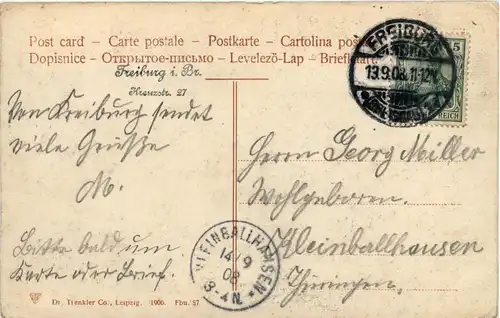 Post card – Carte postale – Postkarte – Cartolina postale
Dopisnice – Открытое-письмо – Levelező-Lap – Briefkaart
Freiburg i. Br.
Kreuzstr. 27
Von Freiburg sendet
viele Grüße
M.
Bitte bald um
Karte oder Brief.
Herrn Georg Miller
Wohlgeboren.
Kleinballhausen
Thüringen.
FREIBURG
13.9.08. 11-12V.
5
REICH
KLEINBALLHAUSEN
14/9
08
3-4N.
Dr. Trenkler Co., Leipzig. 1906. Fbu. 87